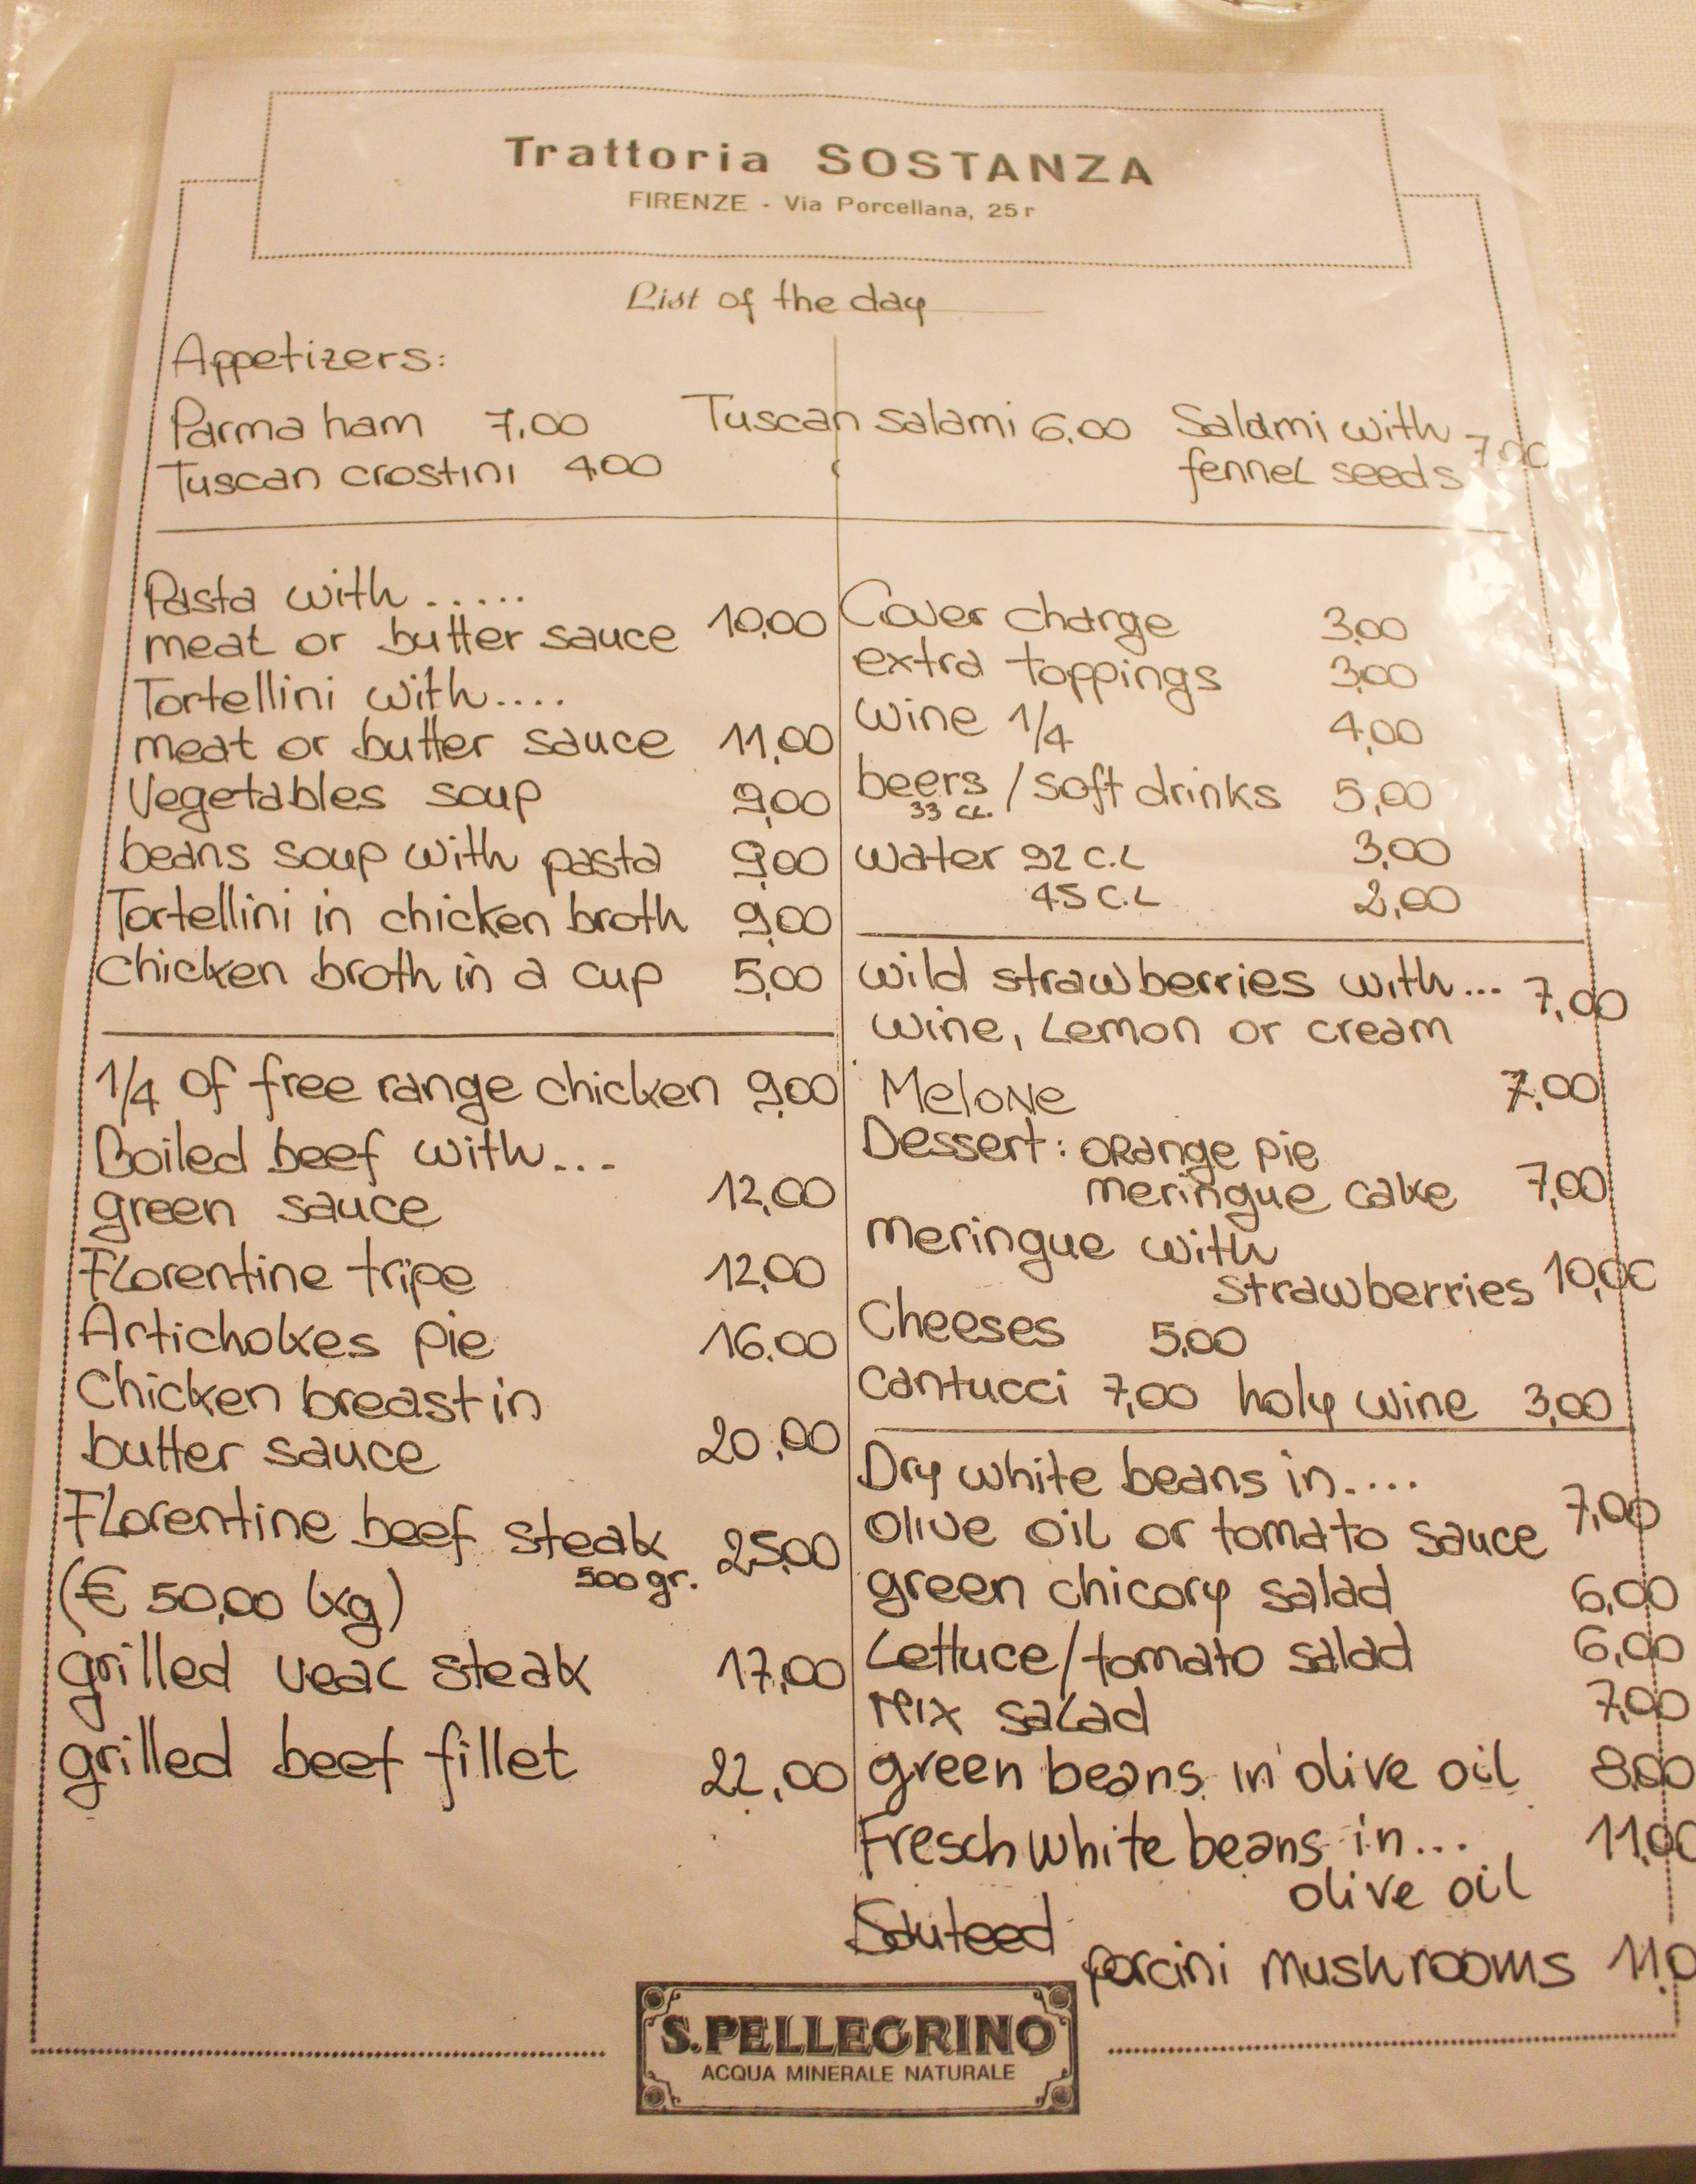 Trattoria SOSTANZA
FIRENZE - Via Porcellana, 25 r
List of the day
Appetizers:
Parma ham 7,00 Tuscan salami 6,00 Salami with
fennel seeds 7,00
Tuscan crostini 4,00
Pasta with.....
meat or butter sauce 10,00
Tortellini with....
meat or butter sauce 11,00
Vegetables soup 9,00
beans soup with pasta 9,00
Tortellini in chicken broth 9,00
chicken broth in a cup 5,00
1/4 of free range chicken 9,00
Boiled beef with...
green sauce 12,00
Florentine tripe 12,00
Artichokes pie 16,00
Chicken breast in
butter sauce 20,00
Florentine beef steak 25,00
500 gr.
(€ 50,00 kg)
grilled veal steak 17,00
grilled beef fillet 22,00
Cover charge 3,00
extra toppings 3,00
wine 1/4 4,00
beers / soft drinks 5,00
33 cc.
water 92 c.L 3,00
45 c.L 2,00
wild strawberries with... 7,00
wine, Lemon or cream
Melone 7,00
Dessert: orange pie
meringue cake 7,00
meringue with
strawberries 10,00
Cheeses 5,00
cantucci 7,00 holy wine 3,00
Dry white beans in....
olive oil or tomato sauce 7,00
green chicory salad 6,00
Lettuce/tomato salad 6,00
Mix salad 7,00
green beans in olive oil 8,00
Fresch white beans in... 11,00
olive oil
Sauteed
porcini mushrooms 11,0
S.PELLEGRINO
ACQUA MINERALE NATURALE